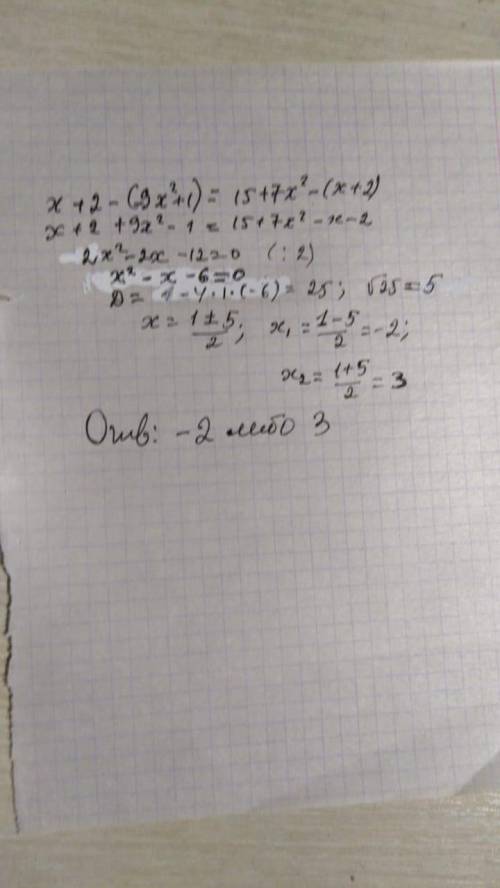 x + 2 - (9x² + 1) = 15 + 7x² - (x + 2)
x + 2 + 9x² - 1 = 15 + 7x² - x - 2
2x² - 2x - 12 = 0 (: 2)
x² - x - 6 = 0
D = 1 - 4 · 1 · (-6) = 25; √25 = 5
x = (1 ± 5)/2; x₁ = (1 - 5)/2 = -2;
x₂ = (1 + 5)/2 = 3
Отв: -2 либо 3